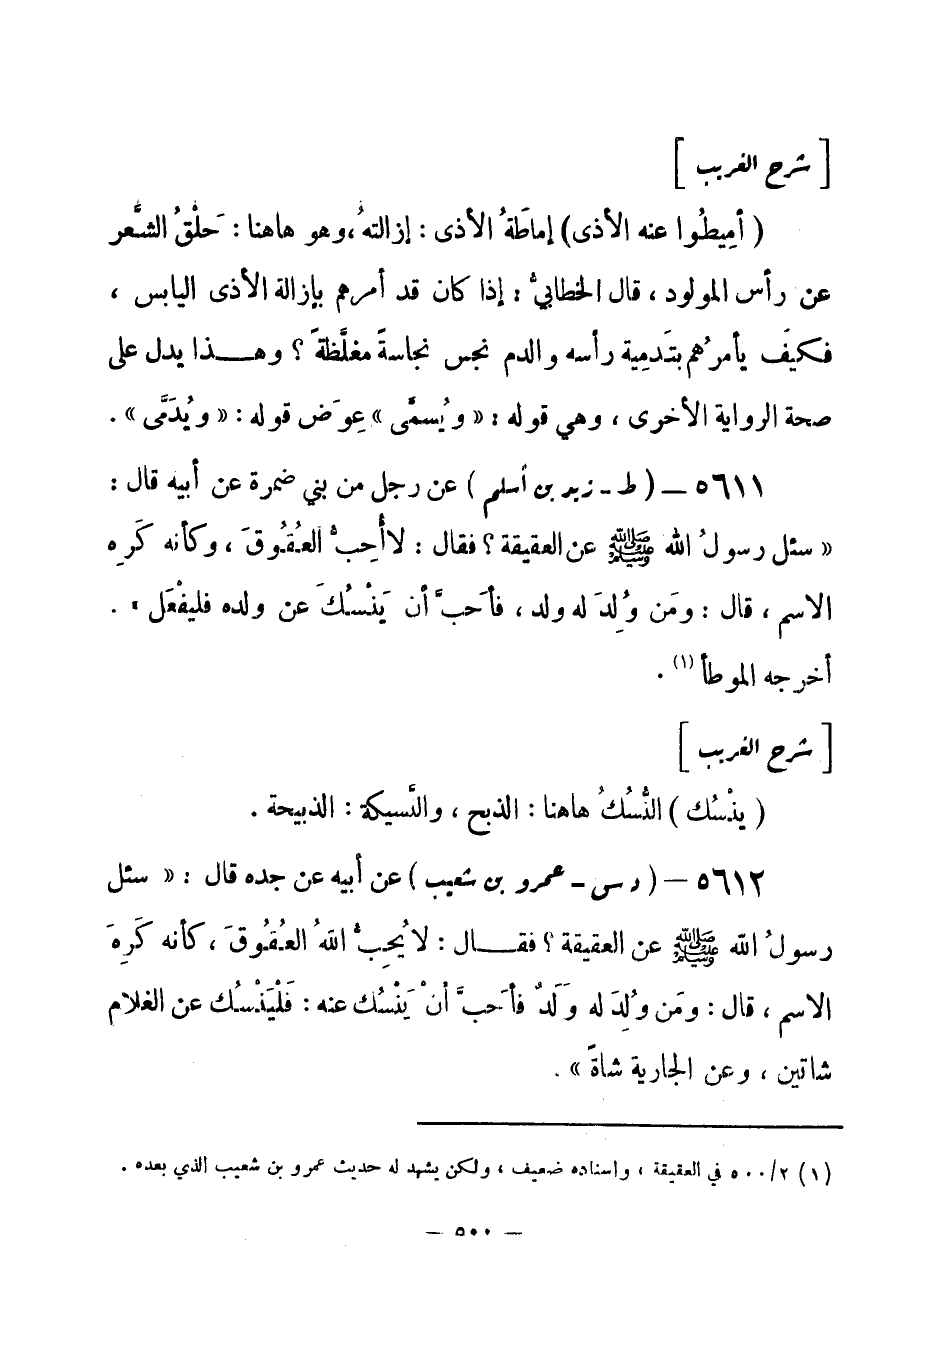 [ شرح الغريب ]
( أمِيطُوا عنه الأذى) إماطَةُ الأذى : إزالتهُ ،وهو هاهنا : حَلْقُ الشَّعر
عن رأس المولود ، قال الخطابيُّ : إذا كان قد أمرهم بإزالة الأذى اليابس ،
فكيفَ يأمرُهم بتَدمِية رأسه والدم نجس نجاسةً مغلَّظةً ؟ وهــذا يدل على
صحة الرواية الأخرى ، وهي قوله : « ويُسمَّى » عِوَض قوله : « ويُدَمَّى » .
٥٦١١ – ( ط - زيد بن أسلم ) عن رجل من بني ضمرة عن أبيه قال :
« سئل رسولُ الله ﷺ عن العقيقة ؟ فقال : لا أُحِبُّ العُقُوقَ ، وكأنه كَرِه
الاسم ، قال : ومَن وُلِدَ له ولد ، فأحَبَّ أن يَنْسُكَ عن ولده فليفْعَل » .
أخرجه الموطأ (١) .
[ شرح الغريب ]
( ينْسُك ) النُّسُكُ هاهنا : الذبح ، والنَّسيكة : الذبيحة .
٥٦١٢ – ( د س - عمرو بن شعيب ) عن أبيه عن جده قال : « سئل
رسولُ الله ﷺ عن العقيقة ؟ فقــال : لا يُحِبُّ اللهُ العُقُوقَ ، كأنه كَرِهَ
الاسم ، قال : ومَن وُلِدَ له وَلَدٌ فأحَبَّ أنْ يَنْسُك عنه : فَلْيَنْسُك عن الغلام
شاتين ، وعن الجارية شاةً » .
(١) ٥٠٠/٢ في العقيقة ، وإسناده ضعيف ، ولكن يشهد له حديث عمرو بن شعيب الذي بعده .
– ٥٠٠ –